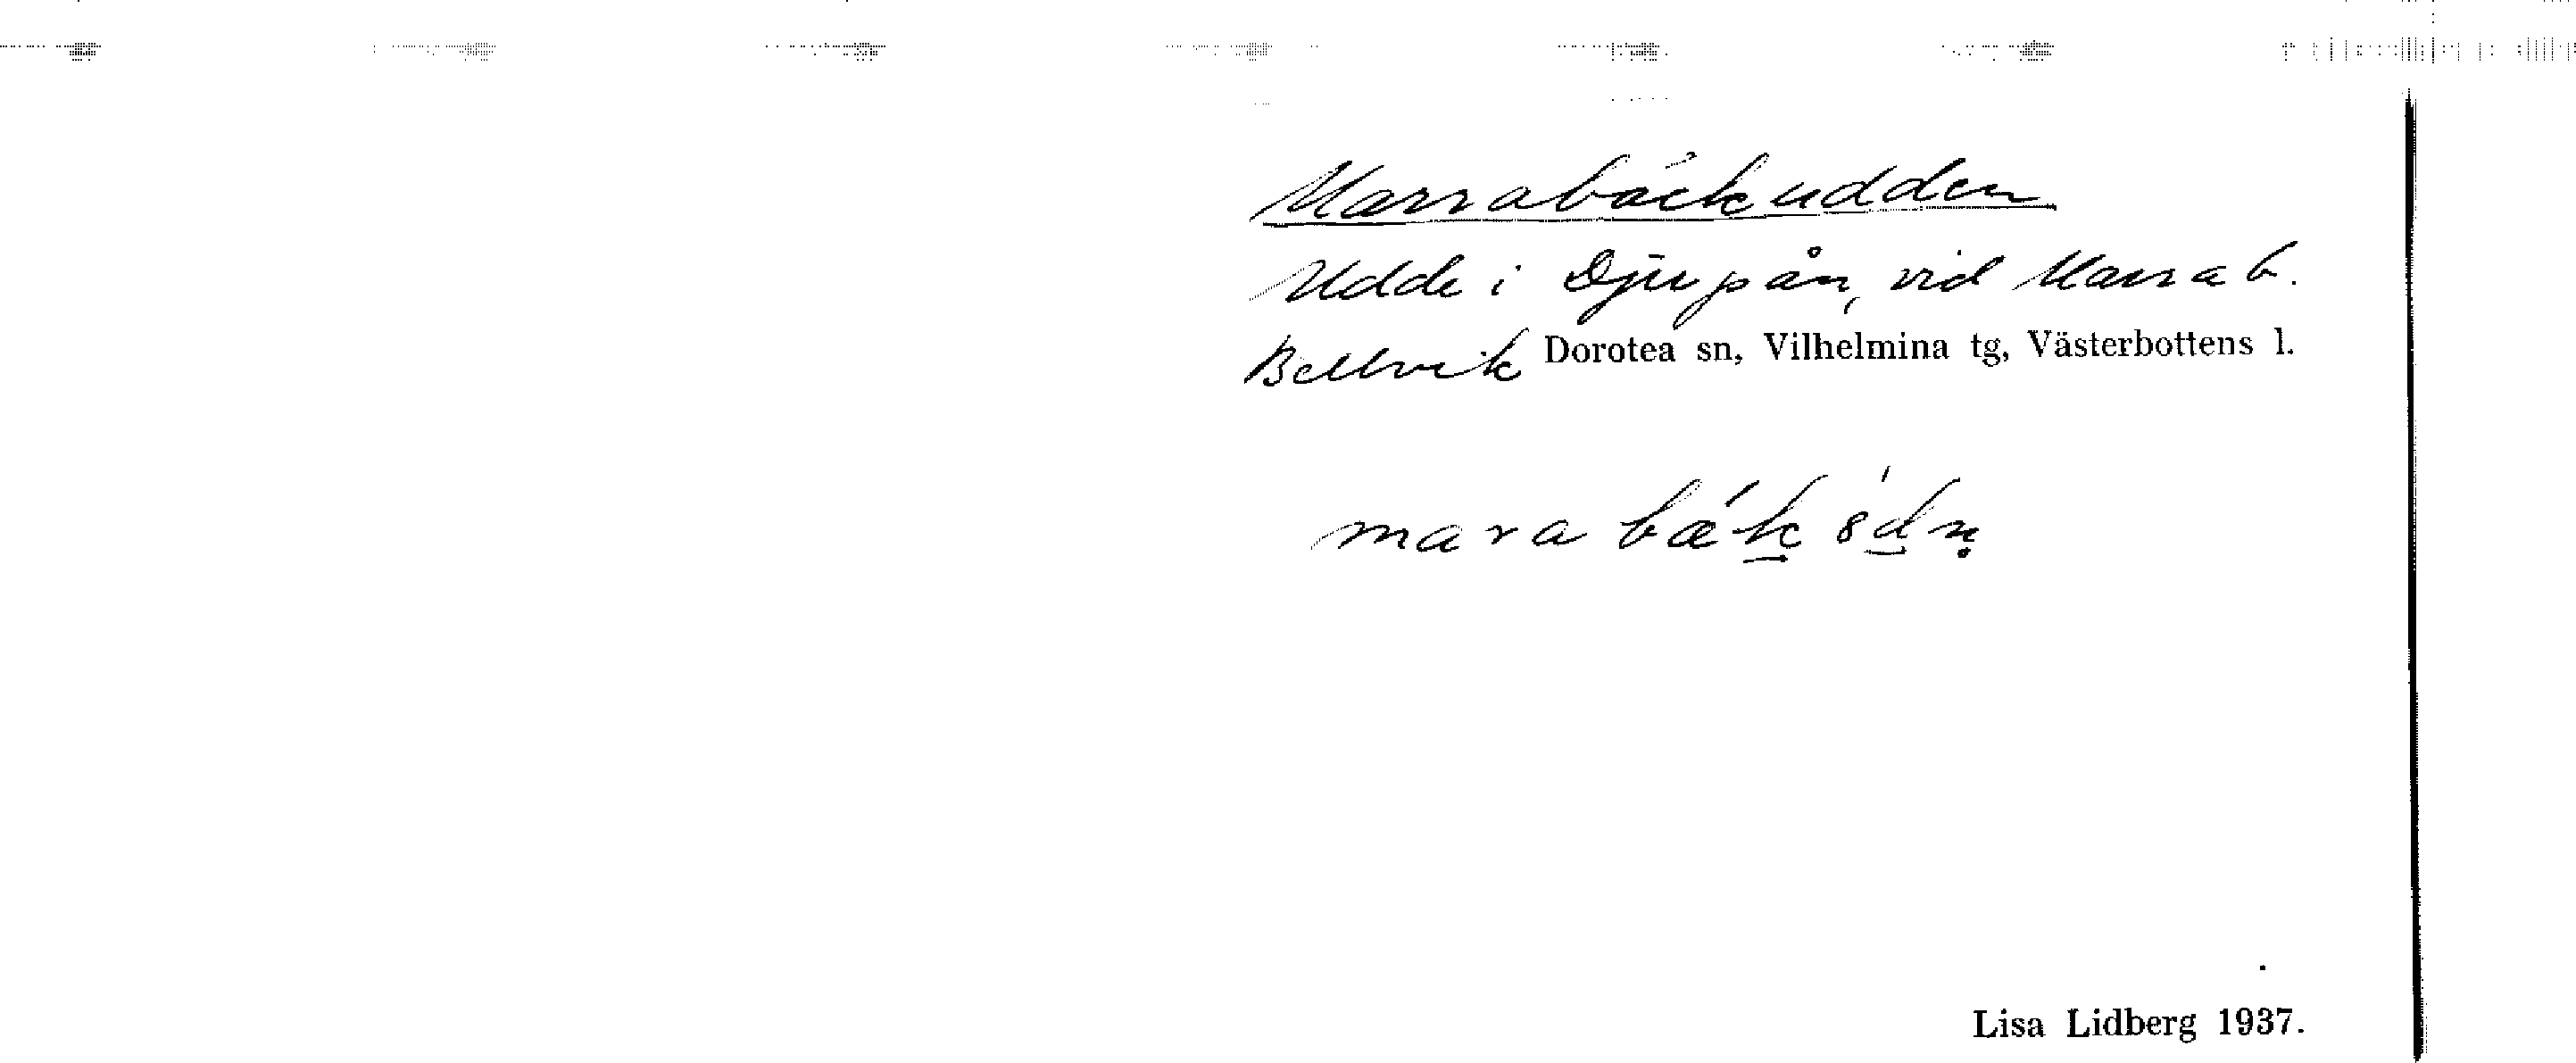 Marrabäckudden
Udde i Djupån, vid Marrab.
Bellvik Dorotea sn, Vilhelmina tg, Västerbottens l.
mara bæ´k 8´dn̥
Lisa Lidberg 1937.